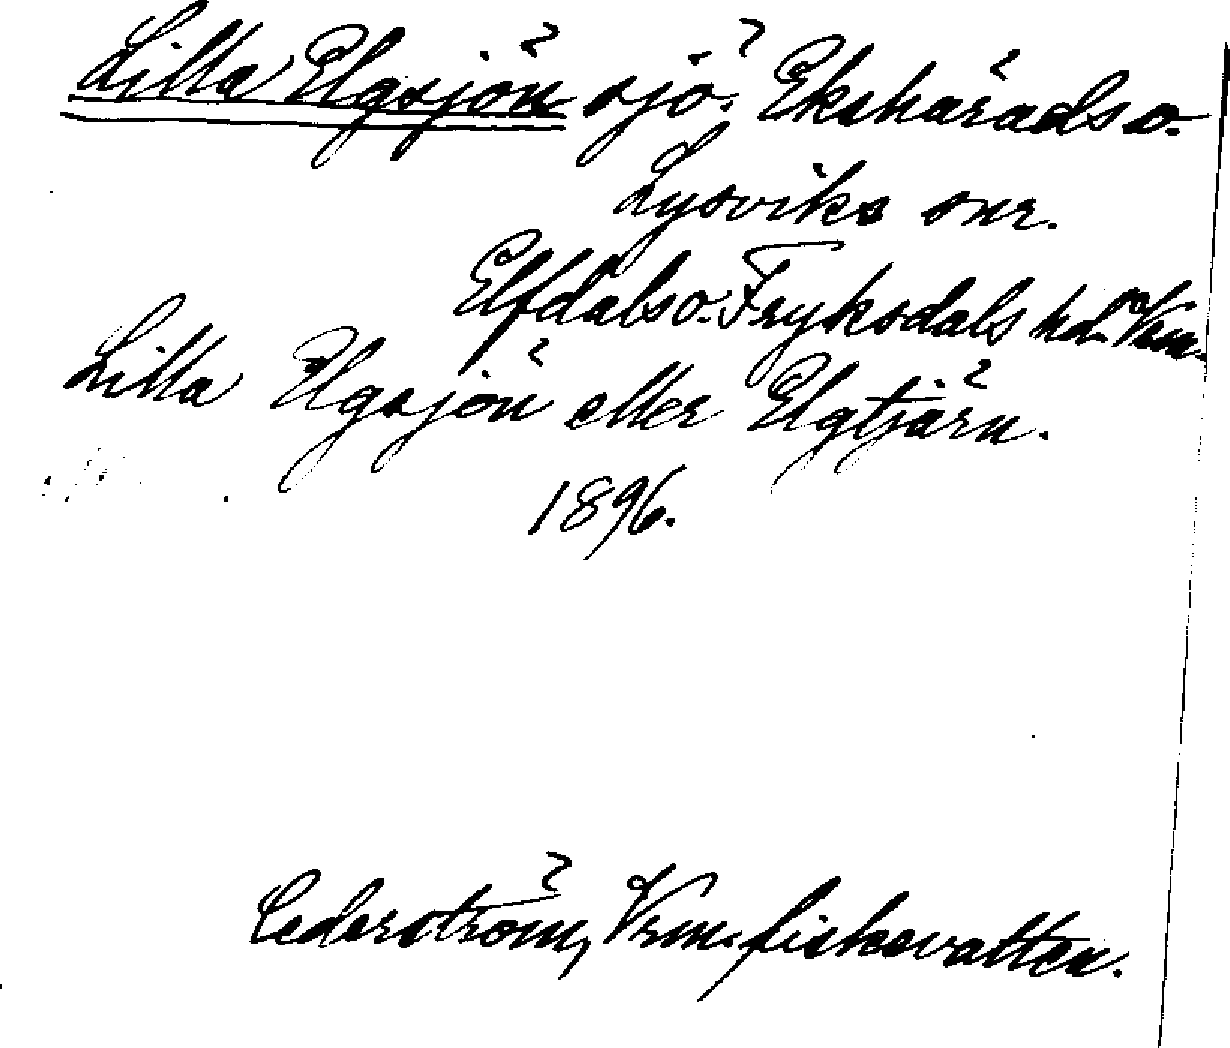 Lilla Elgsjön sjö. Ekshärads o.
Lysviks snr.
Elfdals o. Fryksdals hd. Vrm.
Lilla Elgsjön eller Elgtjärn.
1896.
Cederström, Vrm. fiskevatten.